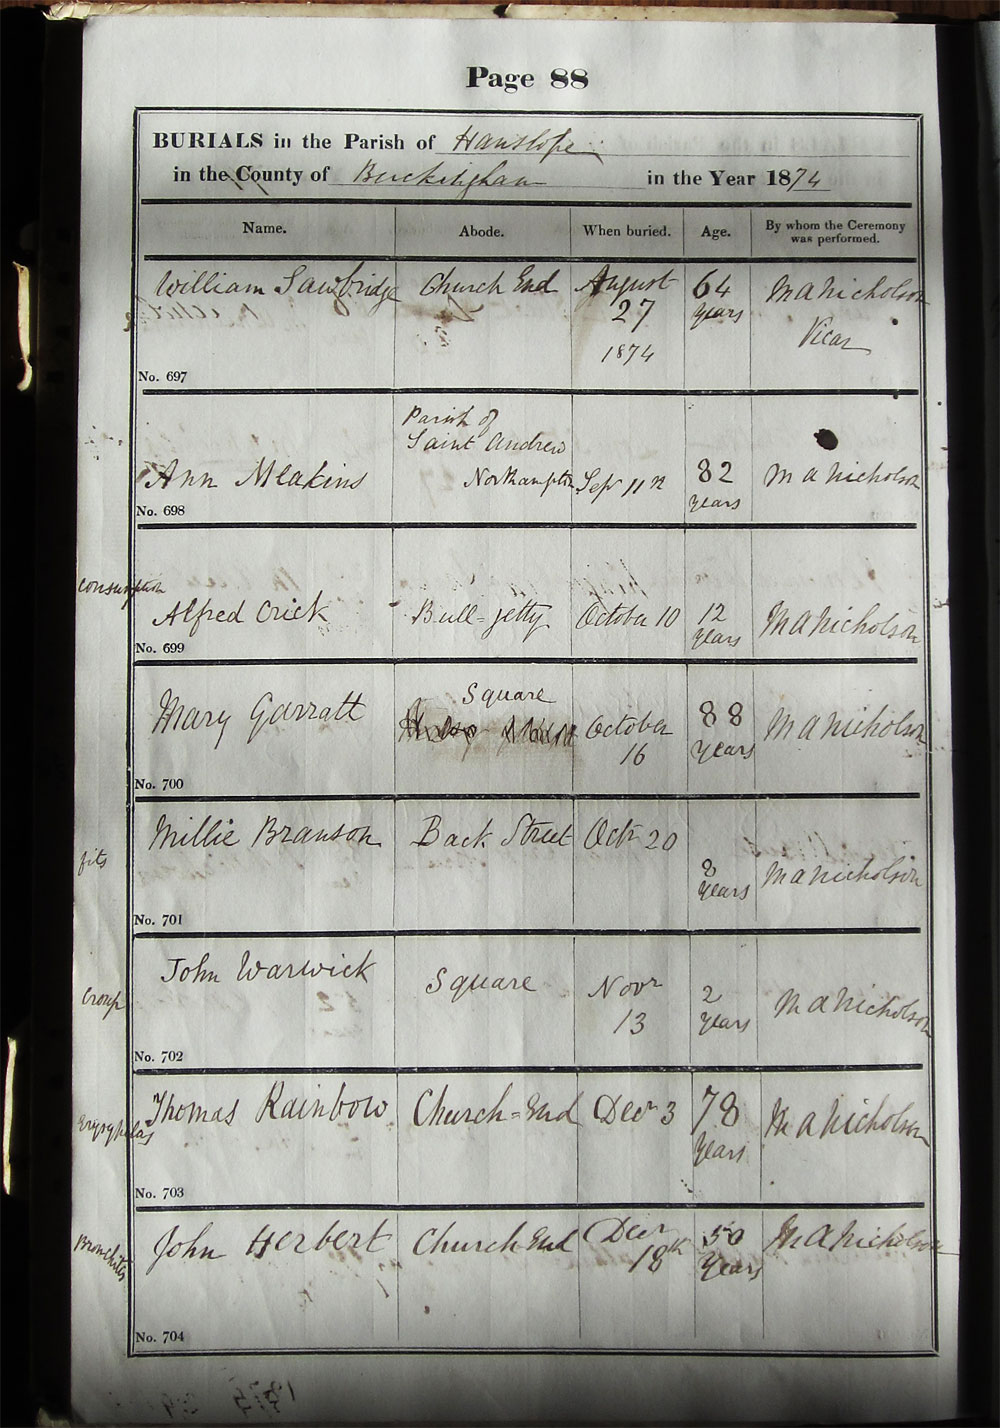 Page 88
BURIALS in the Parish of Hanslope
in the County of Buckingham in the Year 1874
Name. Abode. When buried. Age. By whom the Ceremony was performed.
William Sawbridge Church End August 27 1874 64 years M A Nicholson Vicar
No. 697
Ann Meakins Parish of Saint Andrew Northampton Sepr 11th 82 years M A Nicholson
No. 698
Consumption
Alfred Crick Bull-jetty October 10 12 years M A Nicholson
No. 699
Mary Garratt Square October 16 88 years M A Nicholson
No. 700
fits
Millie Branson Back Street Octr 20 8 years M A Nicholson
No. 701
Croup
John Warwick Square Novr 13 2 years M A Nicholson
No. 702
Erysypelas
Thomas Rainbow Church-End Decr 3 78 years M A Nicholson
No. 703
Bronchitis
John Herbert Church End Decr 18th 50 years M A Nicholson
No. 704